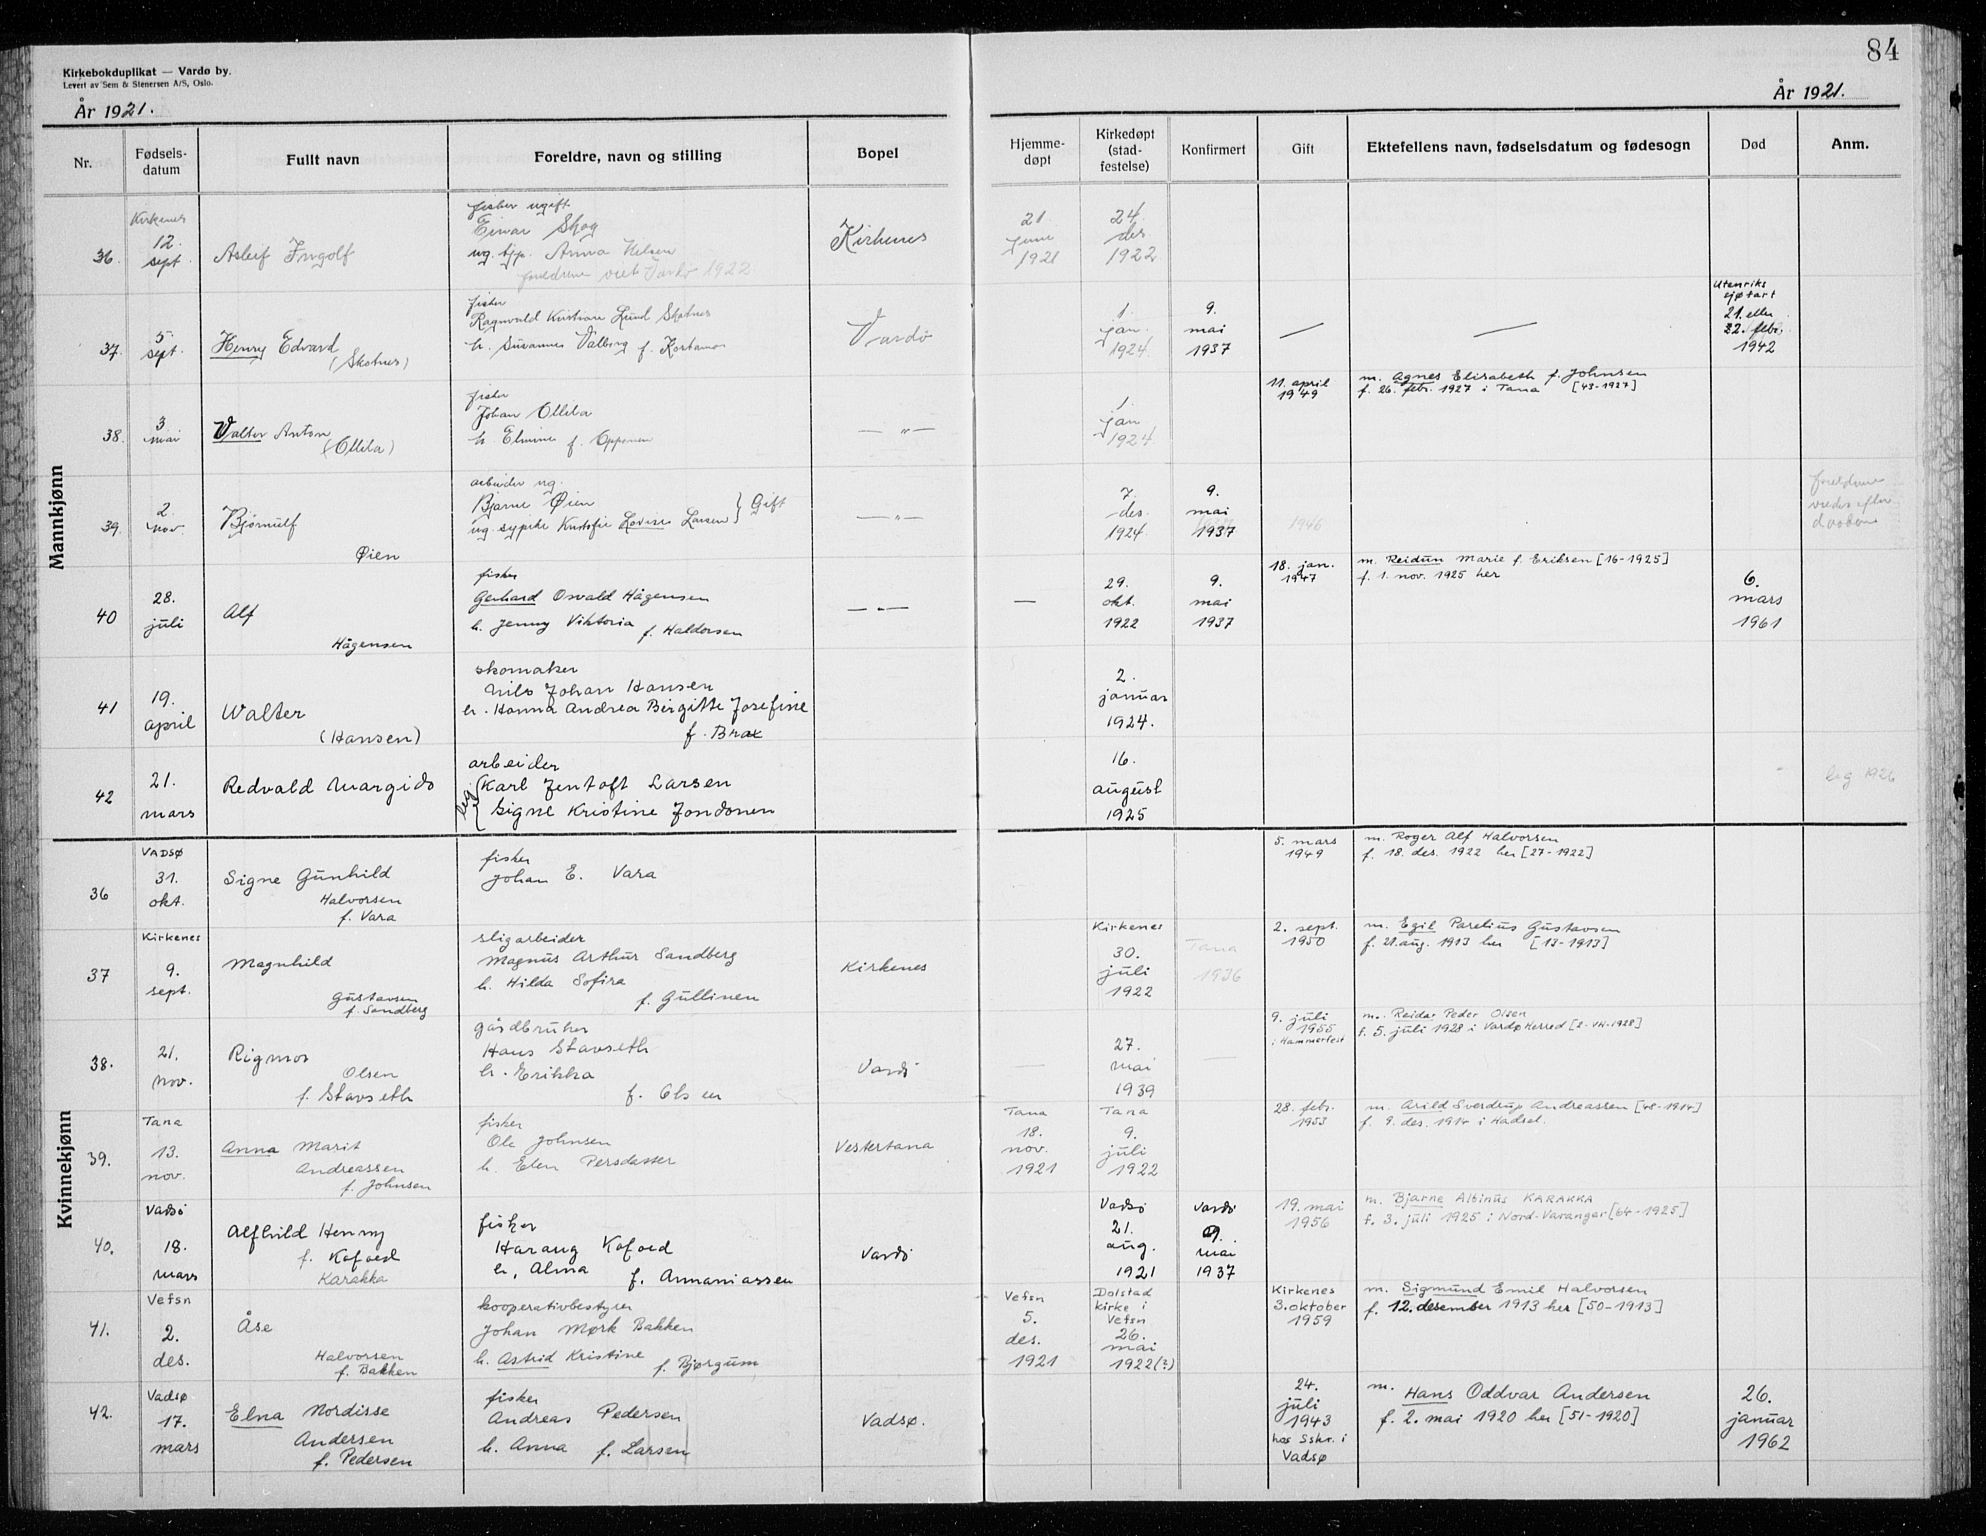 84
Kirkebokduplikat — Vardø by.
Levert av Sem & Stenersen A/S, Oslo.
År 1921.
År 1921.
Nr.
Fødsels-
datum
Fullt navn
Foreldre, navn og stilling
Bopel
Hjemme-
døpt
Kirkedøpt
(stad-
festelse)
Konfirmert
Gift
Ektefellens navn, fødselsdatum og fødesogn
Død
Anm.
Mannkjønn
36.
Kirkenes
12.
sept
Asleif Ingolf
fisker ugift
Einar Skog
ug. tjp. Anna
foreldrene viet Vardø 1922
Kirkenes
21
juni
1921
24.
des
1922
37.
5
sept.
Henry Edvard
(Skotnes)
fisker
Ragnvald Kristian Lund Skotnes
h. Susanna Valborg f.
Vardø
1.
jan.
1924.
9.
mai
1937
—
—
Utenriks
sjøfart
21. eller
22. febr.
1942
38.
3
mai
Valter Anton
(Ollila)
fisker
Johan Ollila
h. Elmine f.
— " —
1.
jan
1924.
11. april
1949
m. Agnes Elisabeth f. Johnsen
f. 26. febr. 1927 i Tana [43-1927]
39.
2.
nov.
Bjørnulf
Øien
arbeider ug.
Bjarne Øien } Gift
ug. Lovise Larsen
— " —
7.
des.
1924.
9.
mai
1937
1946
foreldrene
viedes efter
daaben
40
28.
juli
Alf
Hågensen
fisker
Gerhard Osvald Hågensen
h. Jenny Viktoria f. Haldorsen
— " —
—
29.
okt.
1922
9.
mai
1937
18. jan.
1947
m. Reidun Marie f. Eriksen [16-1925]
f. 1. nov. 1925 her
6.
mars
1961
41
19.
april
Walter
(Hansen)
skomaker
Nils Johan Hansen
h. Hanna Andrea Birgitte Josefine
f. Brax
2.
januar
1924.
42
21.
mars
Redvald Margido
arbeider
leg {Karl Jentoft Larsen
Signe Kristine Jondonen
16.
august
1925
leg 1926
Kvinnekjønn
36
VADSØ
31.
okt.
Signe Gunhild
Halvorsen
f. Vara
fisker
Johan E. Vara
5. mars
1949
m. Roger Alf Halvorsen
f. 18. des. 1922 her [27-1922]
37
Kirkenes
9.
sept.
Magnhild
Gustavsen
f. Sandberg
sligarbeider
Magnus Arthur Sandberg
h. Hilda Sofira
f. Gullinen
Kirkenes
Kirkenes
30.
juli
1922
Tana
1936
2. sept.
1950
m. Egil Parelius Gustavsen
f. 21. aug. 1913 her [13-1913]
38.
21.
nov.
Rigmor
Olsen
f. Stavseth
gårdbruker
Hans Stavseth
h. Erikka
f. Olsen
Vardø
—
27.
mai
1939
—
9. juli
1955
i Hammerfest
m. Reidar Peder Olsen
f. 5. juli 1928 i Vardø Herred [2-VH-1928]
39.
Tana
13.
nov.
Anna Marit
Andreassen
f. Johnsen
fisker
Ole Johnsen
h. Elen Persdatter
Vestertana
Tana
18.
nov.
1921
Tana
9.
juli
1922
28. febr.
1953
m. Arild Sverdrup Andreassen [48-1914]
f. 9. des. 1914 i Hadsel.
40.
Vadsø
18.
mars
Alfhild Henny
f. Kofoed
Karakka
fisker
Harang Kofoed
h. Alma f. Annaniassen
Vardø
Vadsø
21.
aug.
1921
Vardø
9.
mai
1937
19. mai
1956
m. Bjarne Albinus KARAKKA
f. 3. juli 1925 i Nord-Varanger [64-1925]
41.
Vefsn
2.
des.
Åse
Halvorsen
f. Bakken
kooperativbestyrer
Johan Mørk Bakken
h. Astrid Kristine f. Bjørgum
Vefsn
5.
des.
1921
Dolstad
kirke i
Vefsn
26.
mai
1922(?)
Kirkenes
3. oktober
1959
m. Sigmund Emil Halvorsen
f. 12. desember 1913 her [50-1913]
42.
Vadsø
17.
mars
Elna Nordisse
Andersen
f. Pedersen
fisker
Andreas Pedersen
h. Anna f. Larsen
Vadsø.
24.
juli
1943
hos Sskr. i
Vadsø
m. Hans Oddvar Andersen
f. 2. mai 1920 her [51-1920]
26.
januar
1962